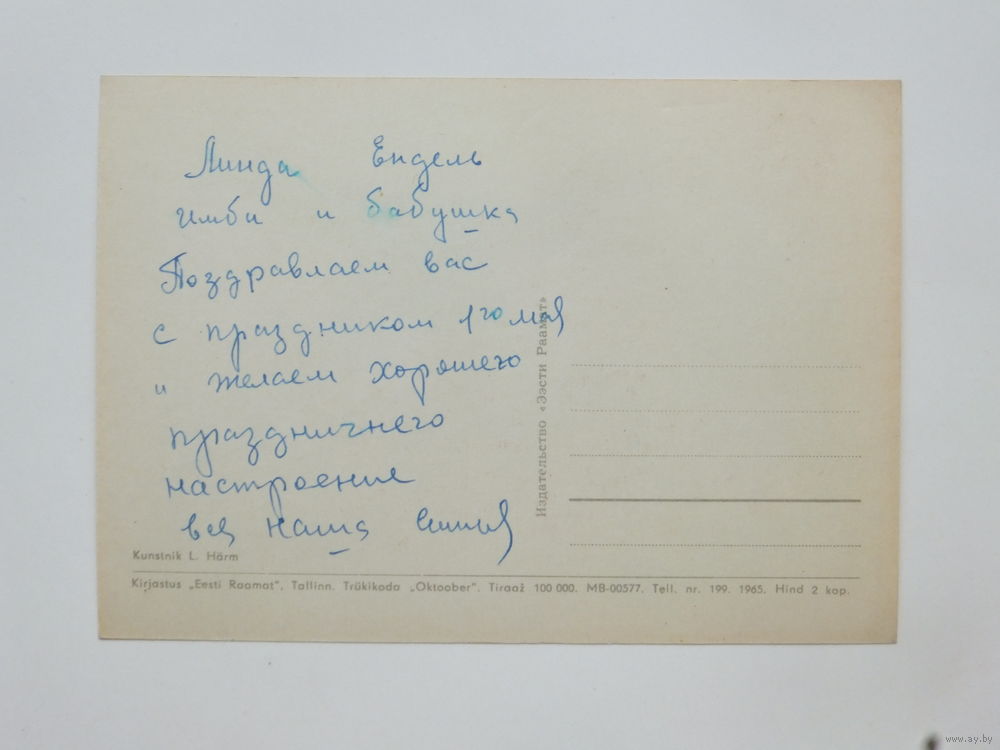 Линда Ендель
Имби и бабушка
Поздравляем вас
с праздником 1го мая
и желаем хорошего
праздничнего
настроение
вся наша симья
Издательство «Ээсти Раамат»
Kunstnik L. Härm
Kirjastus „Eesti Raamat". Tallinn. Trükikoda „Oktoober". Tiraaž 100 000. MB-00577. Tell. nr. 199. 1965. Hind 2 kop.
www.ay.by